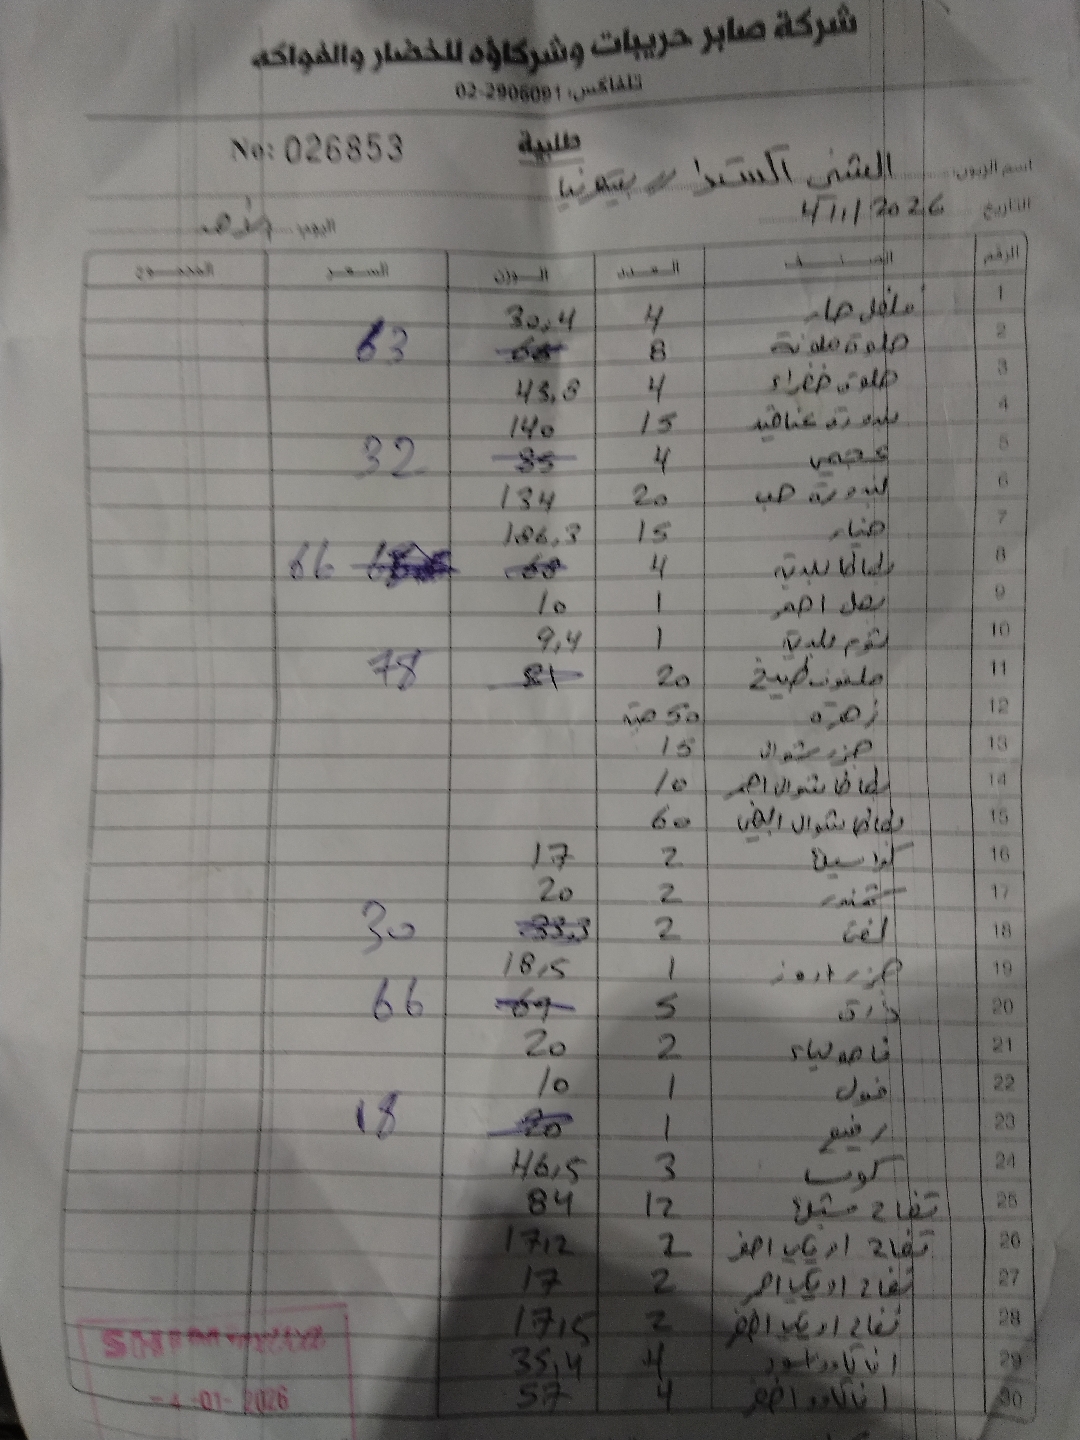 شركة صابر حريبات وشركاؤه للخضار والفواكه
تلفاكس: 02-2906091
طلبية No: 026853
اسم الزبون:
التاريخ 4/1/2026 اليوم
الرقم الصنف العدد الوزن السعر المجموع
1 فلفل حار 4 30,4
2 حلوة ملونة 8 66 63
3 حلوة خضراء 4 43,8
4 بندورة عناقيد 15 140
5 عجمي 4 35 32
6 بندورة حب 20 134
7 خيار 15 186,3
8 بطاطا بلدية 4 68 66
9 بصل احمر 1 10
10 ثوم بلدي 1 9,4
11 ملفوف طبيخ 20 81 78
12 زهرة 50 حبة
13 جزر شوال 15
14 بطاطا شوال احمر 10
15 بطاطا شوال ابيض 60
16 2 17
17 شمندر 2 20
18 لفت 2 33,3 30
19 جزر 1 18,5
20 ذرة 5 69 66
21 فاصولياء 2 20
22 فول 1 10
23 رفيع 1 20 18
24 كوب 3 46,5
25 تفاح 12 84
26 تفاح اخضر 2 17,2
27 تفاح 2 17
28 تفاح 2 17,5
29 4 35,4
30 4 57
-4-01-2026